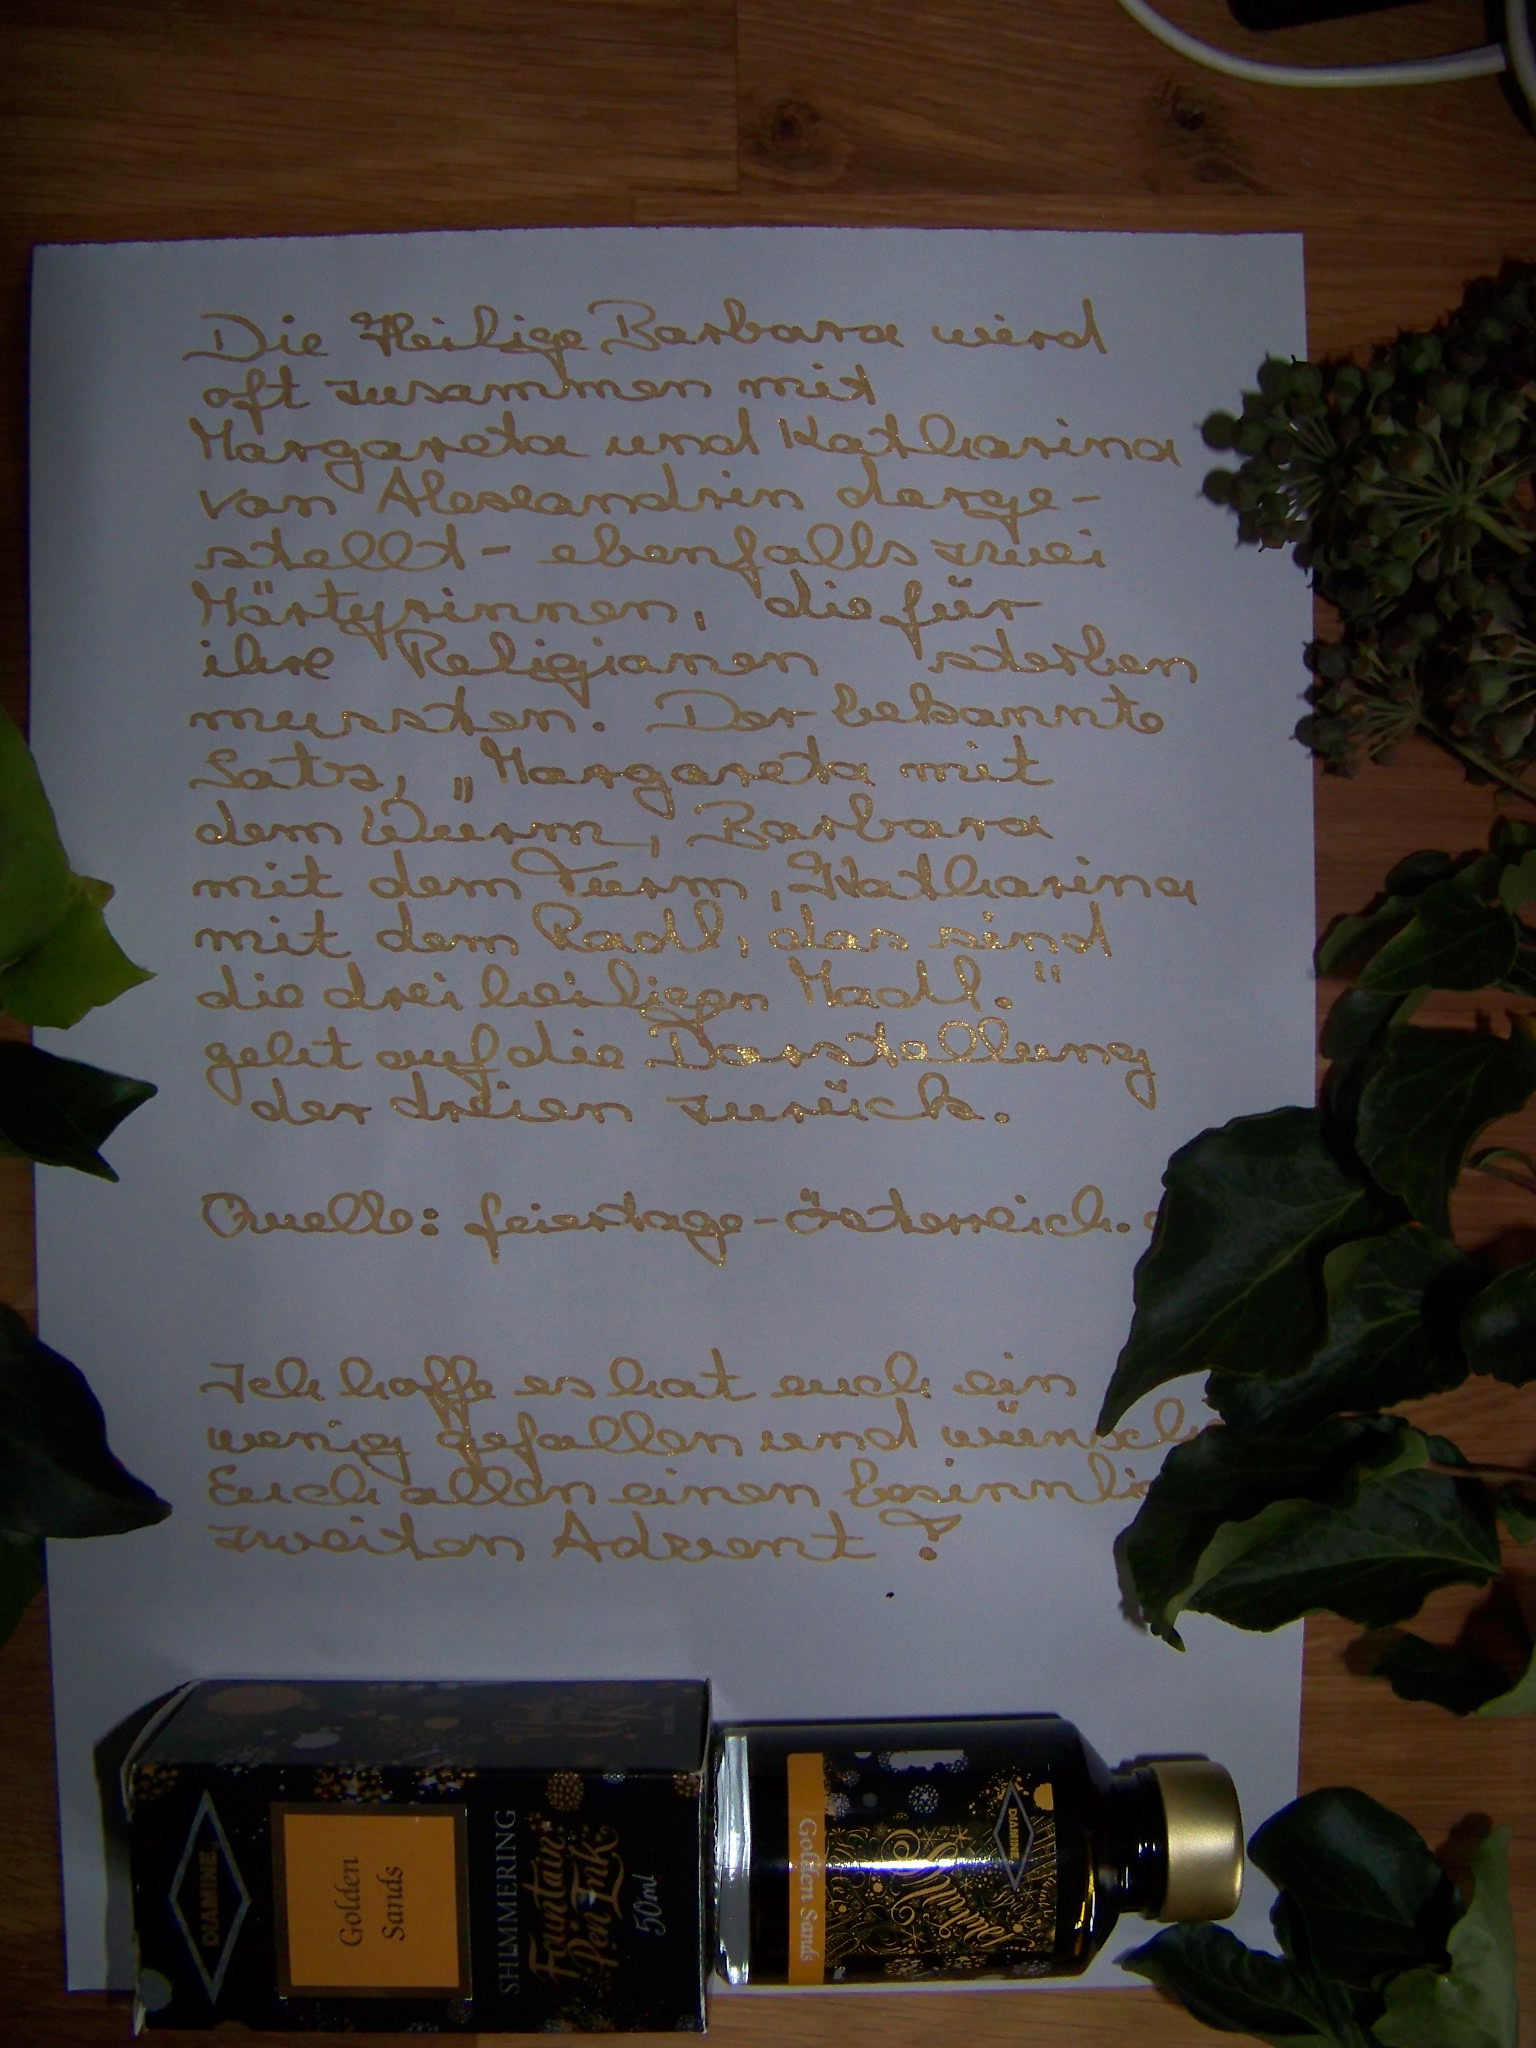 Die Heilige Barbara wird
oft zusammen mit
Margareta und Katharina
von Alexandrin darge-
stellt - ebenfalls zwei
Märtyrinnen, die für
ihre Religionen sterben
mussten. Der bekannte
Satz, „Margareta mit
dem Wurm, Barbara
mit dem Turm, Katharina
mit dem Radl, das sind
die drei heiligen Madl."
geht auf die Darstellung
der dreien zurück.
Quelle: feiertage-österreich.
Ich hoffe es hat euch ein
wenig gefallen und wünsch
Euch allen einen besinnlic
zweiten Advent!
DIAMINE
Golden
Sands
SHIMMERING
Fountain
Pen Ink
50ml
DIAMINE
Shimmer
Golden Sands